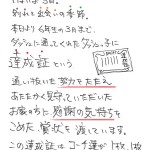 別れと出会いの季節。
本日より6年生の3月まで、
ダッシュに通ってくれたダッシュっ子に
達成証という
通い抜いた努力をたたえ
あたたかく見守っていただいた
お家の方に感謝の気持ちを
こめた賞状を渡しています。
この達成証はコーチ達が1枚1枚